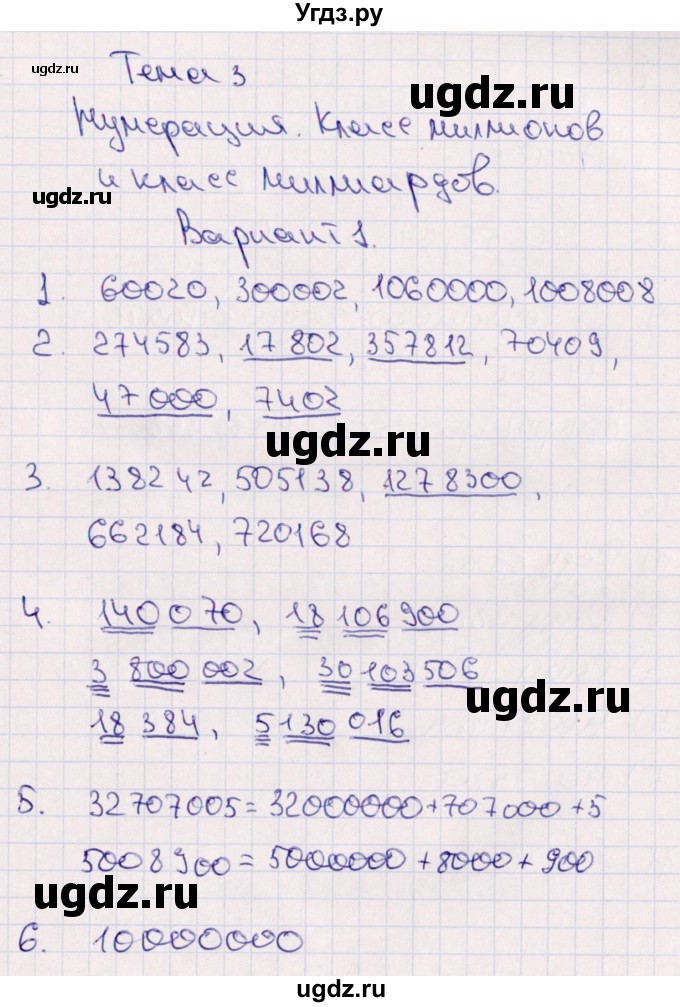 Угдз.ру
Тема 3
ugdz.ru
ugdz.ru
Нумерация. Класс миллионов
и класс миллиардов.
ugdz.ru
Вариант 1.
1. 60020, 300002, 1060000, 1008008
2. 274583, 17 802, 357812, 70409,
47 000, 7402
ugdz.ru
3. 138242, 505138, 1278300,
662184, 720168
4. 140 070, 18 106 900
3 800 002, 30 103 506
ugdz.ru
18 384, 5 130 016
5. 32707005 = 32000000 + 707000 + 5
5008900 = 5000000 + 8000 + 900
ugdz.ru
6. 10000000
ugdz.ru